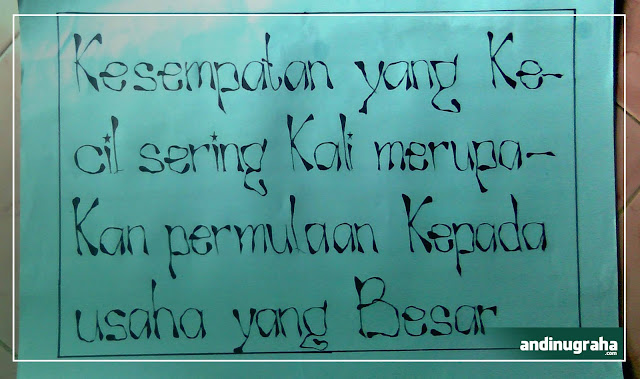 Kesempatan yang Ke-
cil sering Kali merupa-
Kan permulaan Kepada
usaha yang Besar
andinugraha
.com